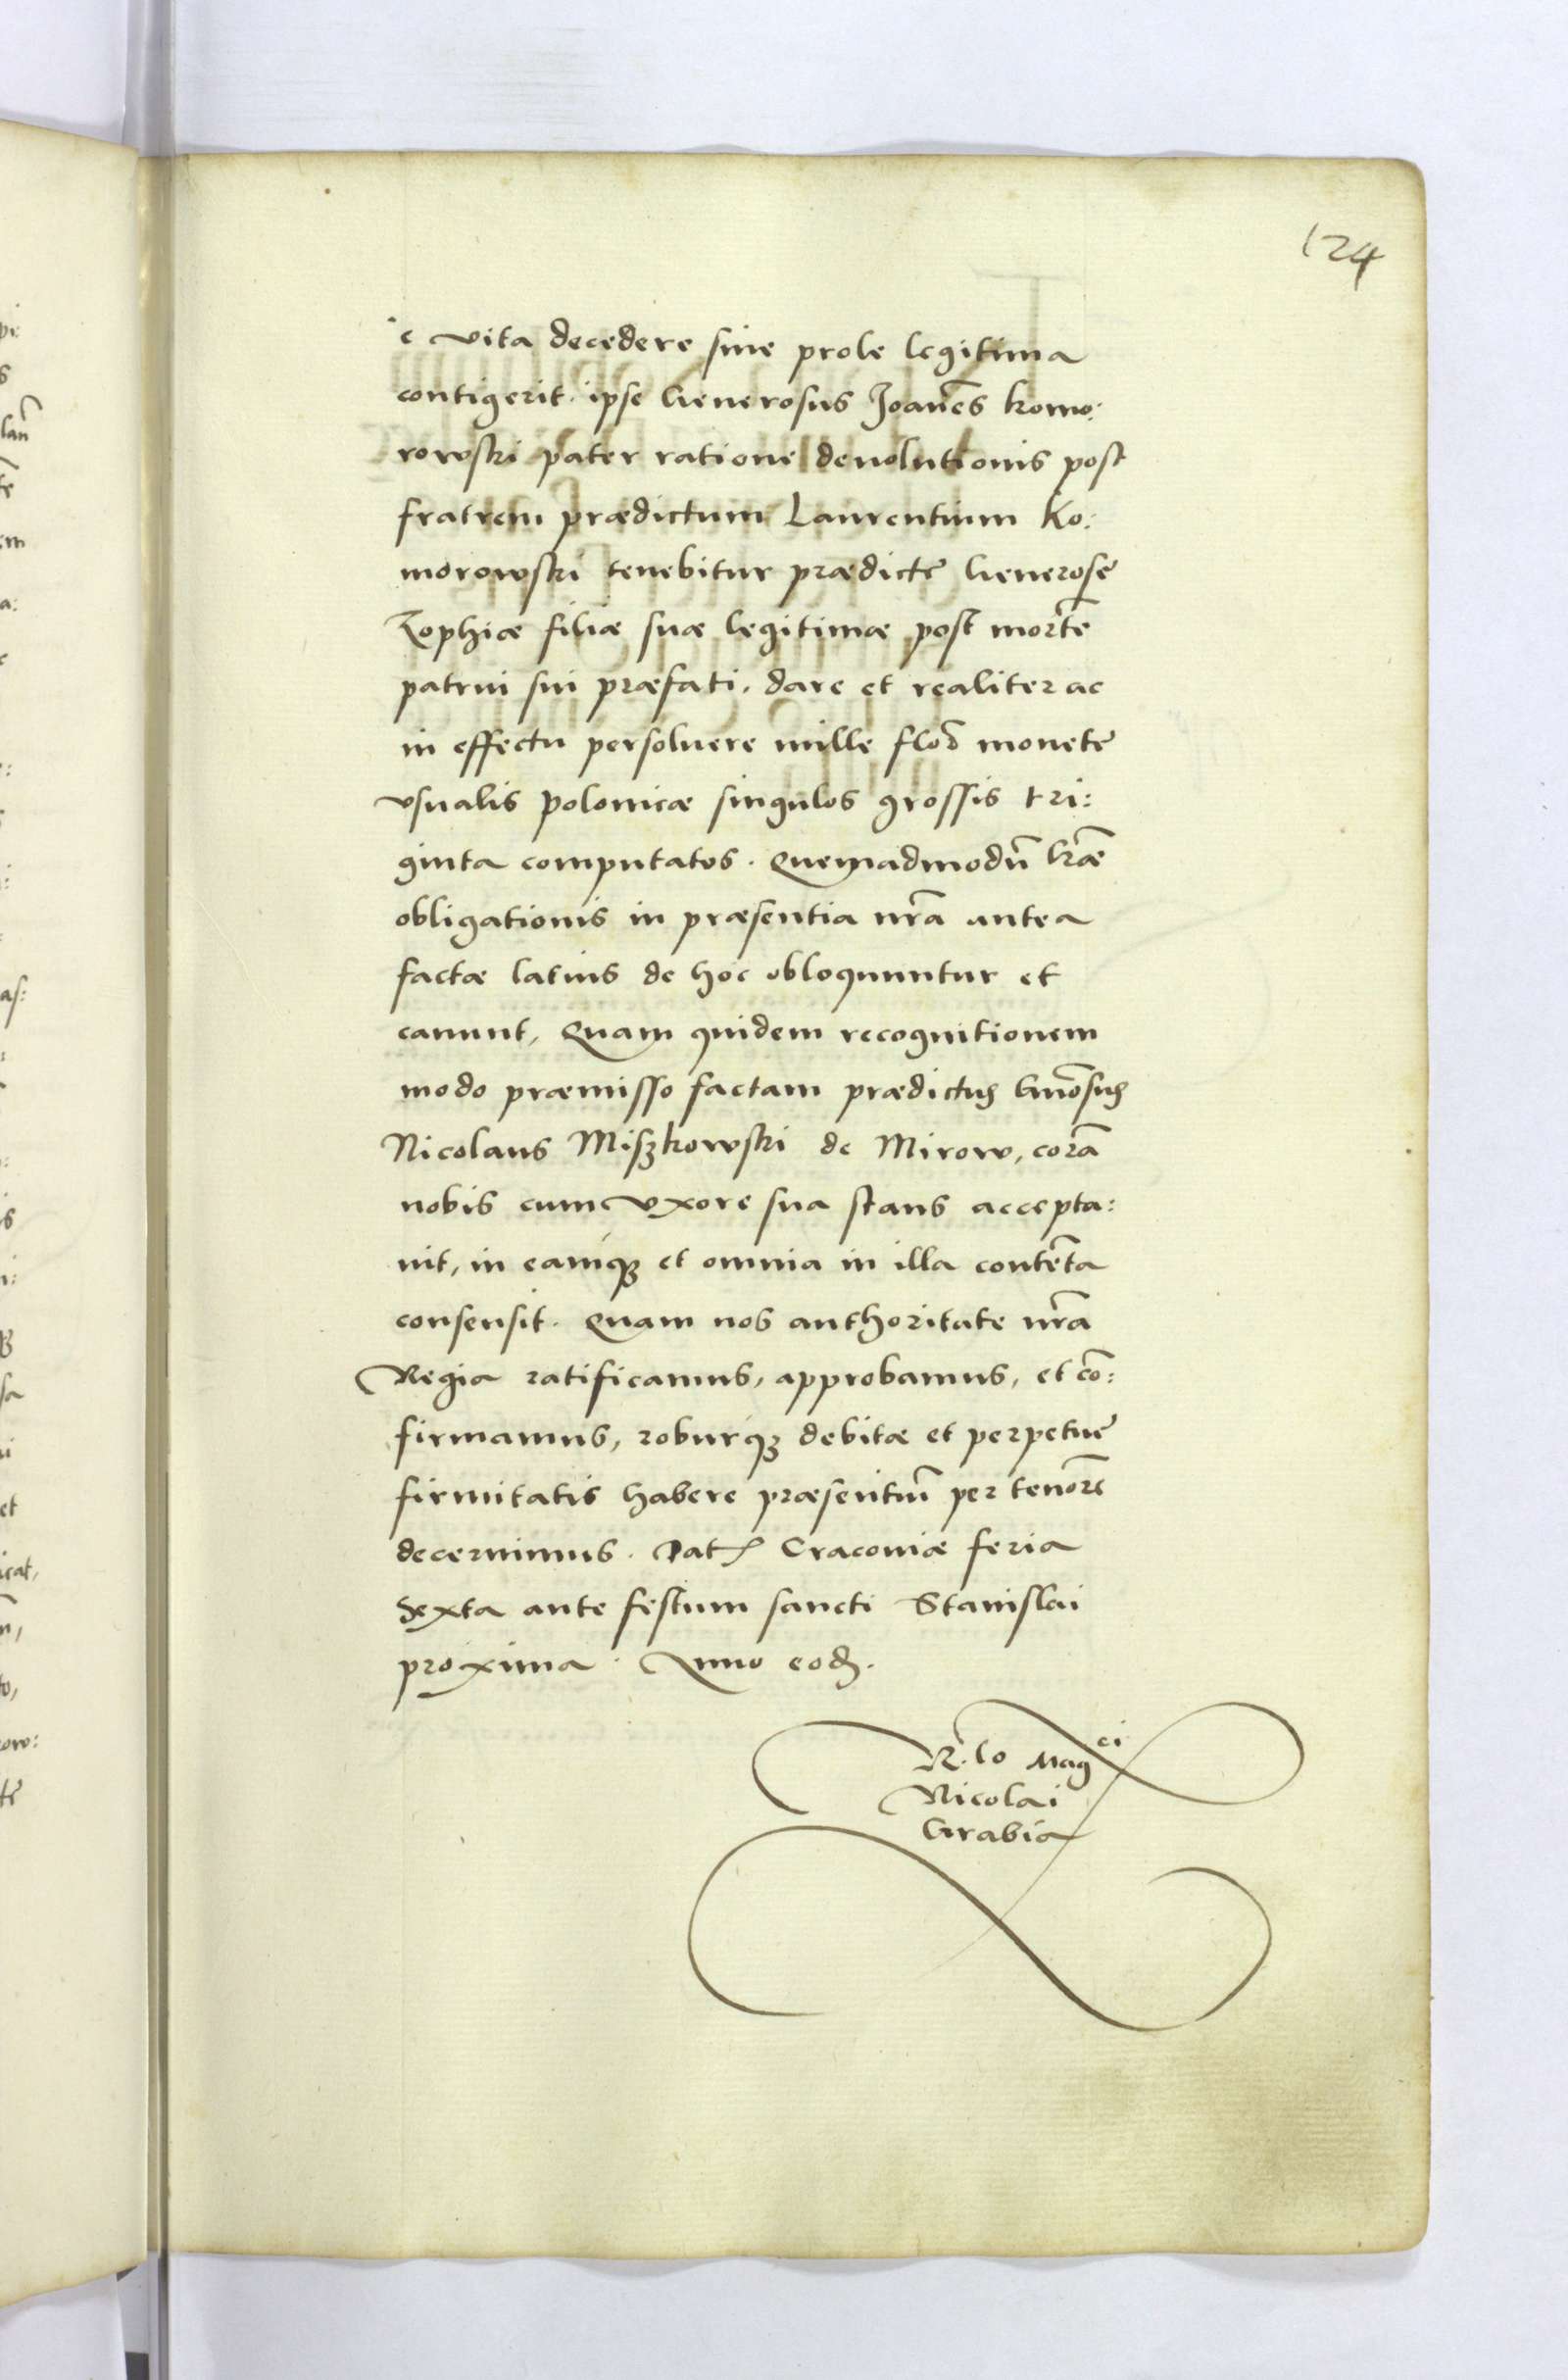 124
e vita decedere sine prole legitima
contigerit. ipse Generosus Joañes Komo:
rowski pater ratione deuolutionis post
fratrem prædictum Laurentium Ko:
morowski tenebitur prædictę Generosę
Zophiæ filiæ suæ legitimæ post mortē
patrui sui præfati, dare et realiter ac
in effectu persoluere mille floō monetę
vsualis polonicæ singulos grossis tri:
ginta computatos. Quemadmodū lr̃æ
obligationis in præsentia nr̃a antea
factæ latius de hoc obloquuntur et
canunt, Quam quidem recognitionem
modo præmisso factam prædictus Gnōsus
Nicolaus Miszkowski de Mirow, corā
nobis cum vxore sua stans accepta:
uit, in eamq₃ et omnia in illa contēta
consensit. Quam nos authoritate nr̃a
Regia ratificamus, approbamus, et cō:
firmamus, roburq₃ debitæ et perpetuę
firmitatis habere præsentiū per tenorē
decernimus. Dat Craconiæ feria
Sexta ante festum sancti Stanislai
proxima. Anno eod.
R.lo Mag ci
Nicolai
Grabia